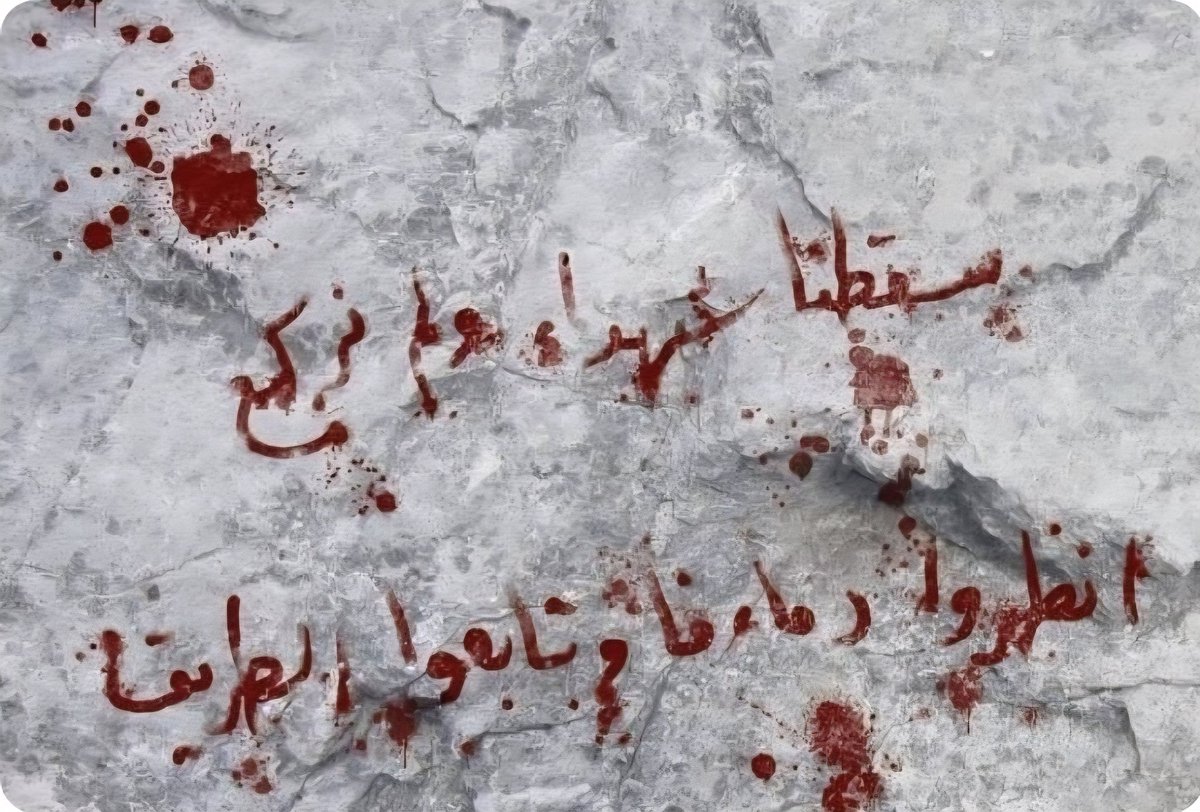 سقطنا شهداء ولم نركع
انظروا دماءنا وتابعوا الطريق